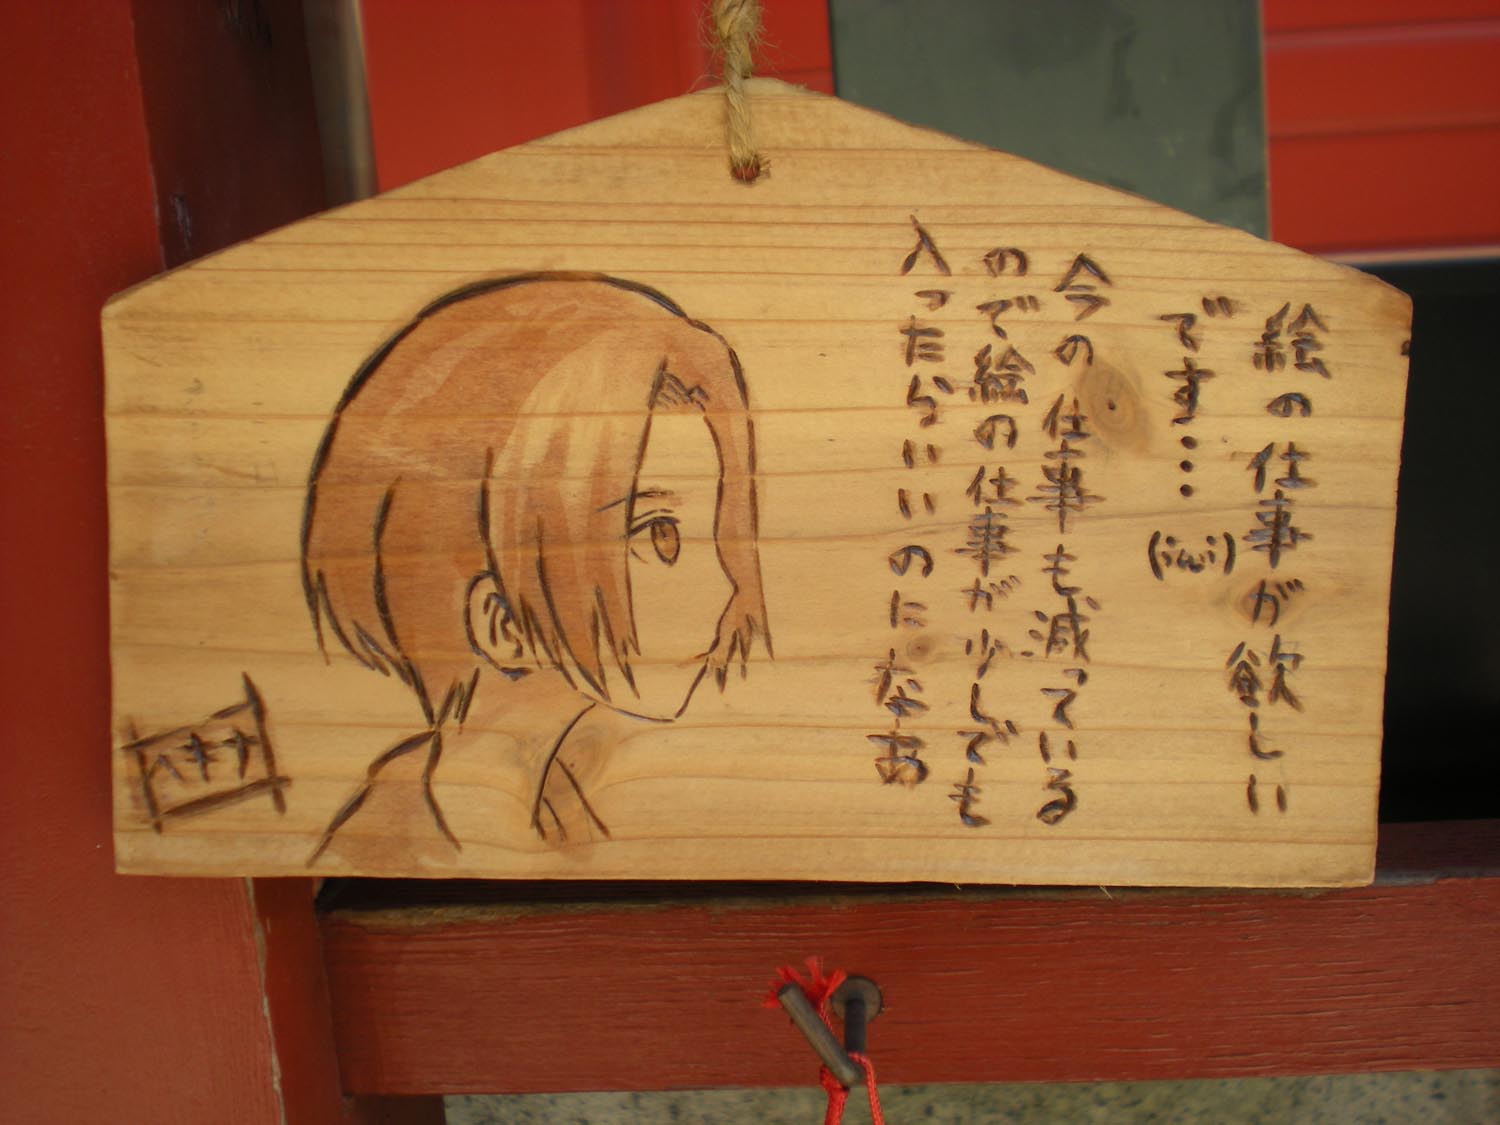 絵の仕事が欲しい
です…
今の仕事も減っている
ので絵の仕事が少しでも
入ったらいいのになあ